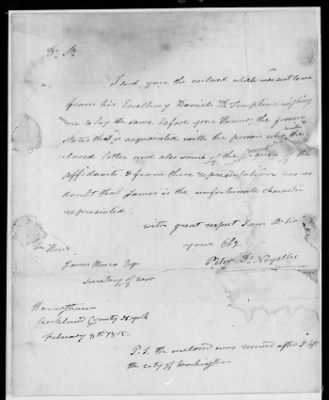 Dr Sir
I send you the enclosed which was sent to me
from his Excellency Daniel D. Tompkins wishing
me to lay the same before your Honor, the
states that is acquainted with the person who
closed letter and also some of the of the
affidavits & from these representations has no
doubt that James is the unfortunate character
represented.
with great respect I am Dr Sir
yours &c
Peter De Noyelles
Hon
James Monroe Esqr
Secretary of War
Haverstraw
Rockland County N York
February 8th 1815.
P. S. the enclosed was received after I left
the city of Washington